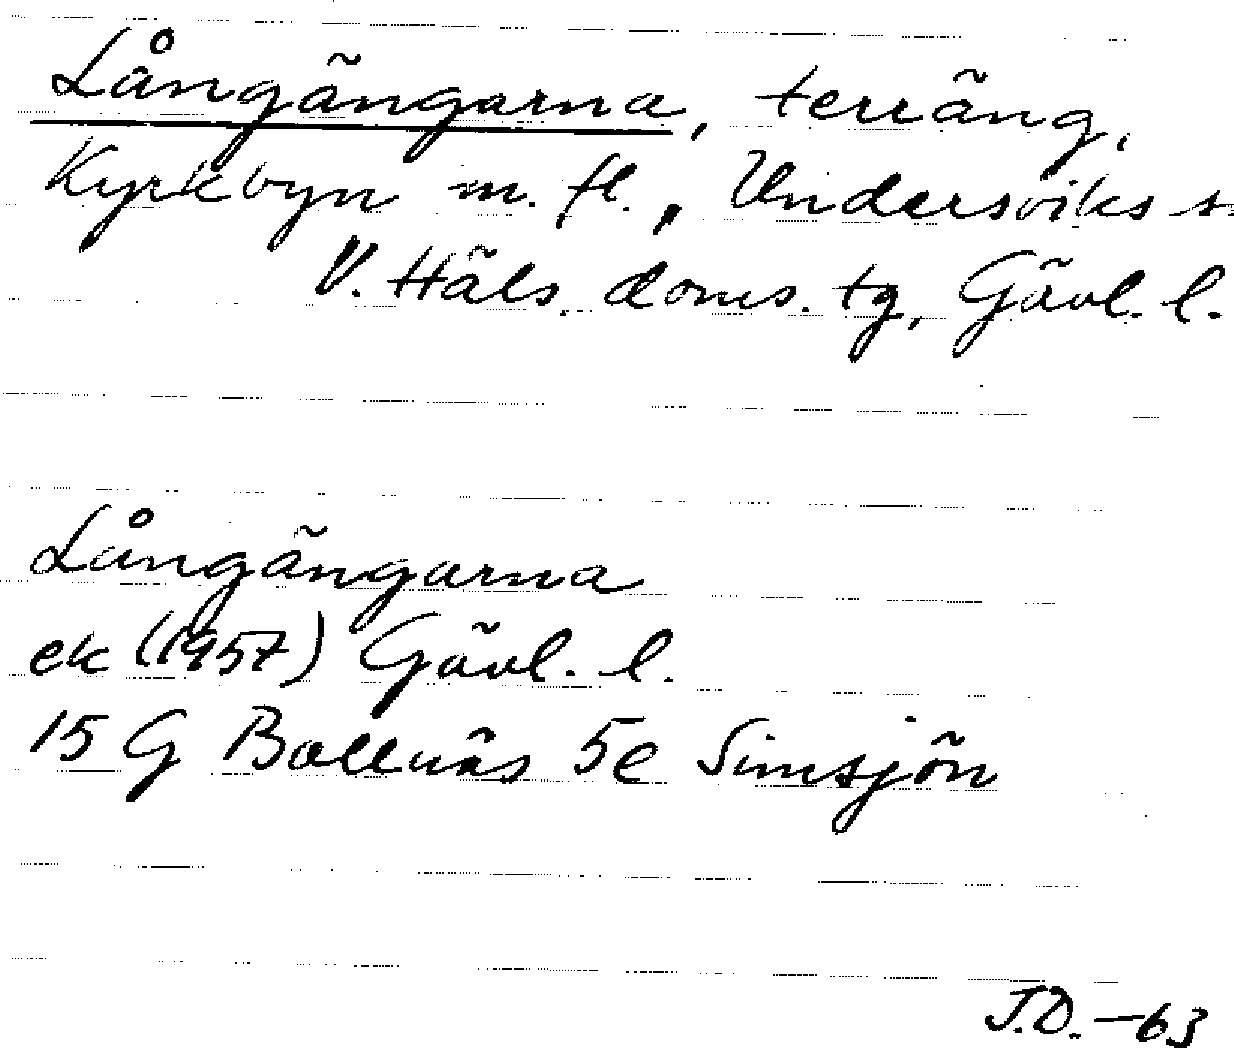 Långängarna, terräng,
Kyrkbyn m.fl., Undersviks s.
V. Häls. doms. tg, Gävl. l.
Långängarna
ek (1957) Gävl. l.
15 G Bollnäs 5e Simsjön
J.D. -63